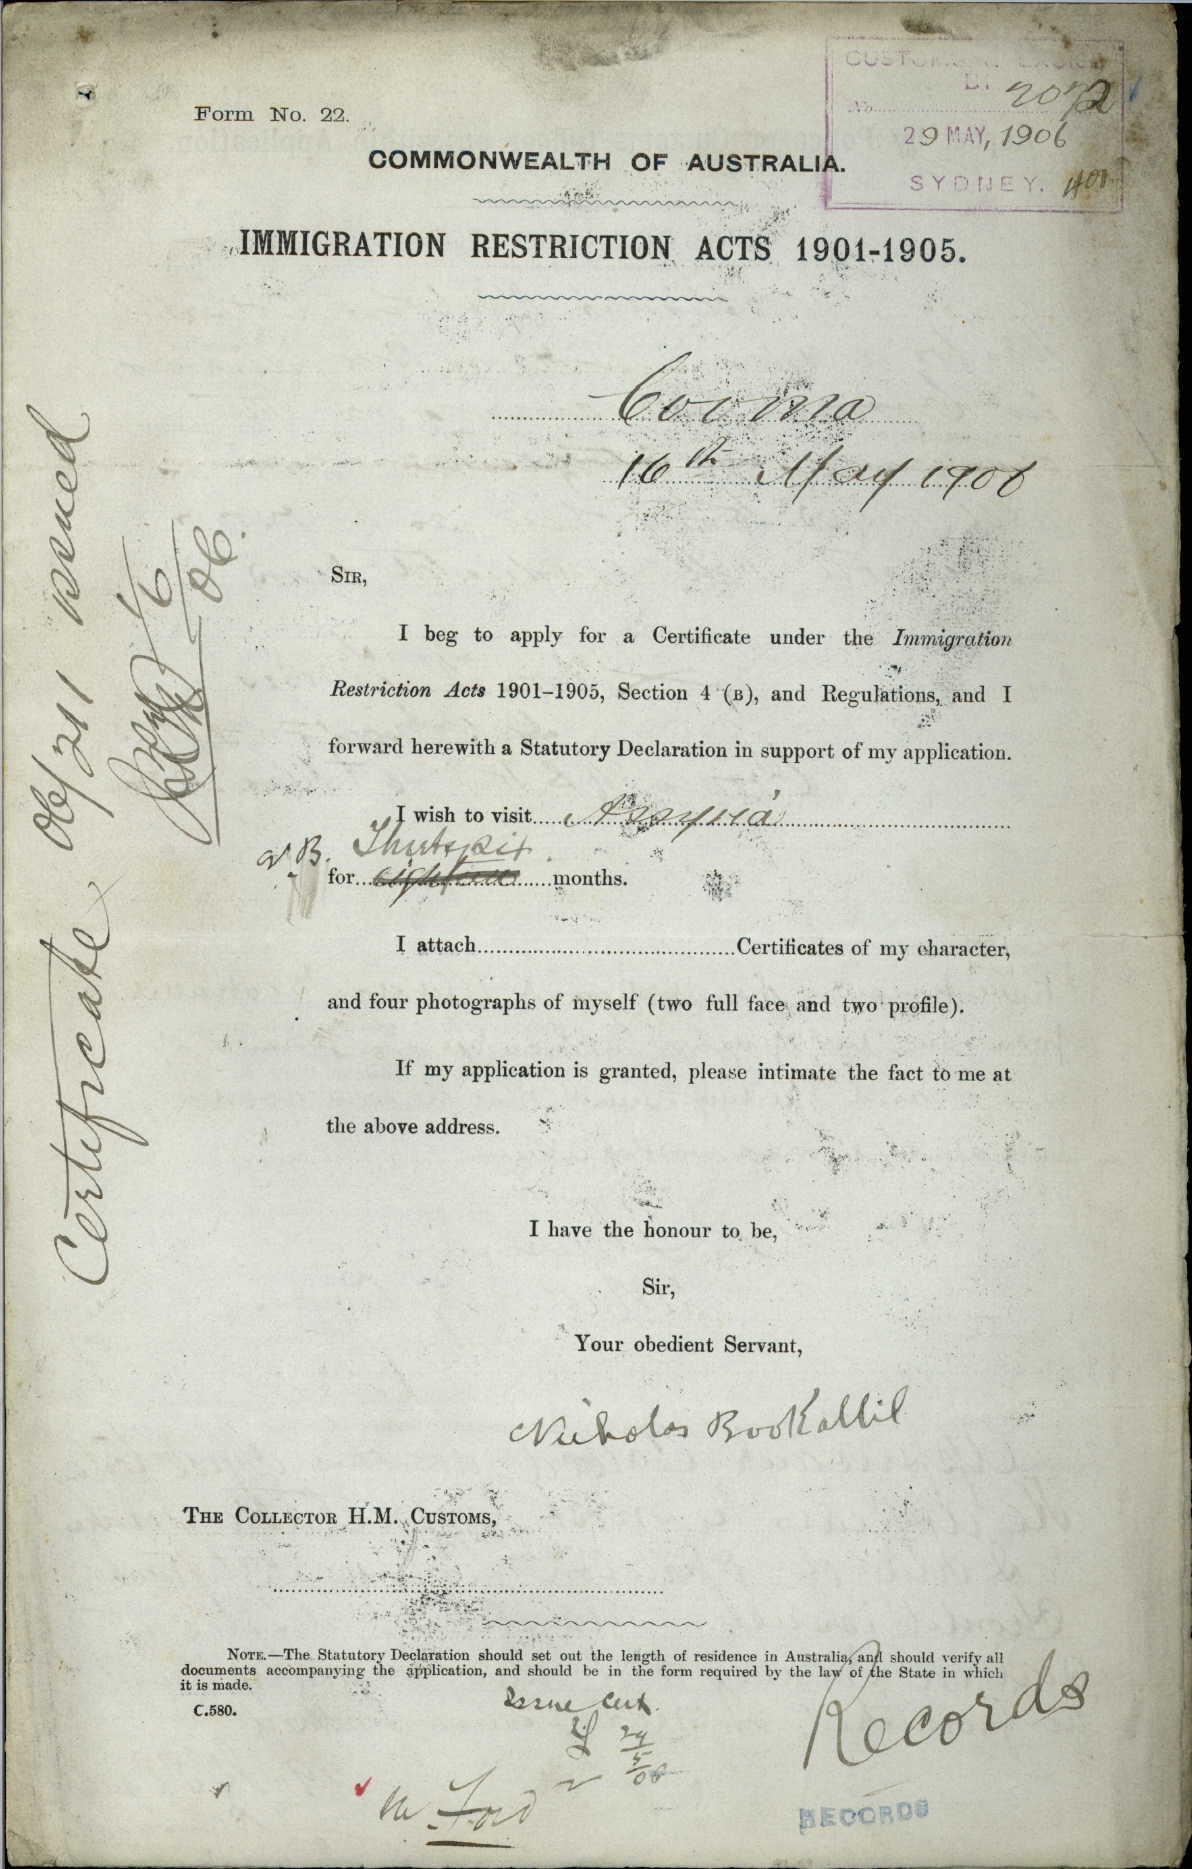 CUSTOMS & EXCISE
No. 2072
29 MAY, 1906
SYDNEY.
Form No. 22.
COMMONWEALTH OF AUSTRALIA.
IMMIGRATION RESTRICTION ACTS 1901-1905.
Cooma
16th May 1906
SIR,
I beg to apply for a Certificate under the Immigration
Restriction Acts 1901–1905, Section 4 (B), and Regulations, and I
forward herewith a Statutory Declaration in support of my application.
I wish to visit Assyria
N.B. Thirtysix
for eighteen months.
I attach Certificates of my character,
and four photographs of myself (two full face and two profile).
If my application is granted, please intimate the fact to me at
the above address.
I have the honour to be,
Sir,
Your obedient Servant,
Nicholas Bookallil
THE COLLECTOR H.M. CUSTOMS,
NOTE.—The Statutory Declaration should set out the length of residence in Australia, and should verify all
documents accompanying the application, and should be in the form required by the law of the State in which
it is made.
C.580.
Issue Cert.
29
5
06
Mr Ford
Records
RECORDS
Certificate 06/211 issued
6
06.